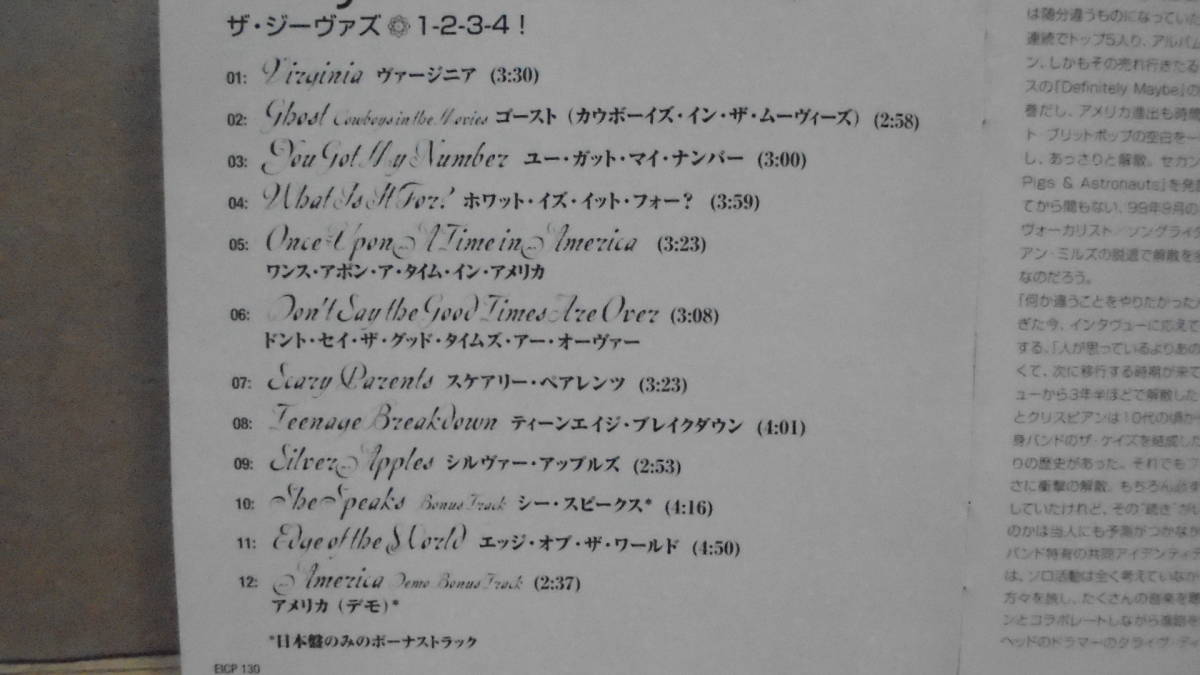 ザ・ジーヴァズ 1-2-3-4！
01: Virginia ヴァージニア (3:30)
02: Ghost Cowboys in the Movies ゴースト（カウボーイズ・イン・ザ・ムーヴィーズ）(2:58)
03: You Got My Number ユー・ガット・マイ・ナンバー (3:00)
04: What Is It For? ホワット・イズ・イット・フォー？ (3:59)
05: Once Upon A Time in America (3:23)
ワンス・アポン・ア・タイム・イン・アメリカ
06: Don't Say the Good Times Are Over (3:08)
ドント・セイ・ザ・グッド・タイムズ・アー・オーヴァー
07: Scary Parents スケアリー・ペアレンツ (3:23)
08: Teenage Breakdown ティーンエイジ・ブレイクダウン (4:01)
09: Silver Apples シルヴァー・アップルズ (2:53)
10: She Speaks Bonus Track シー・スピークス* (4:16)
11: Edge of the World エッジ・オブ・ザ・ワールド (4:50)
12: America Demo Bonus Track (2:37)
アメリカ（デモ）*
*日本盤のみのボーナストラック
EICP 130
は随分違うものになっていた
連続でトップ5入り、アルバム
ン、しかもその売れ行きたる
スの「Definitely Maybe」の
巻だし、アメリカ進出も時間
ト・ブリットポップの空白を一
し、あっさりと解散。セカン
Pigs & Astronauts」を発
てから間もない、99年9月の
ヴォーカリスト／ソングライタ
アン・ミルズの脱退で解散を
なのだろう。
「何か違うことをやりたかった
ぎた今、インタヴューに応えて
する、「人が思っているよりあの
くて、次に移行する時期が来て
ューから3年半ほどで解散した
とクリスピアンは10代の頃か
身バンドのザ・ケイズを結成し
りの歴史があった。それでも
さに衝撃の解散。もちろん
していたけれど、その“続き”が
のかは当人にも予測がつかな
バンド特有の共同アイデンティテ
は、ソロ活動は全く考えていなか
方々を旅し、たくさんの音楽を
ンとコラボレートしながら進路を
ヘッドのドラマーのクライヴ・ディ